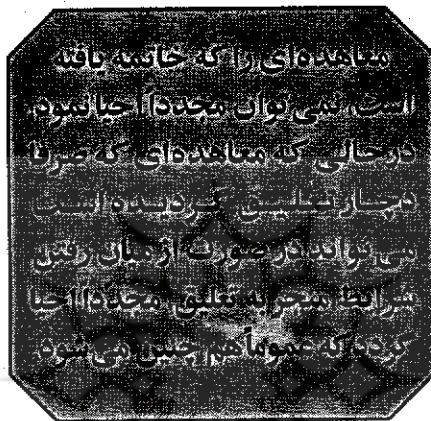 معاهده‌ای را که خاتمه یافته
است، نمی‌توان مجدداً احیا نمود
درحالی که معاهده‌ای که صرفا
دچار تعلیق گردیده است
می‌تواند در صورت از میان رفتن
شرائط منجر به تعلیق مجددا احیا
گردد که عموماً هم چنین می‌شود